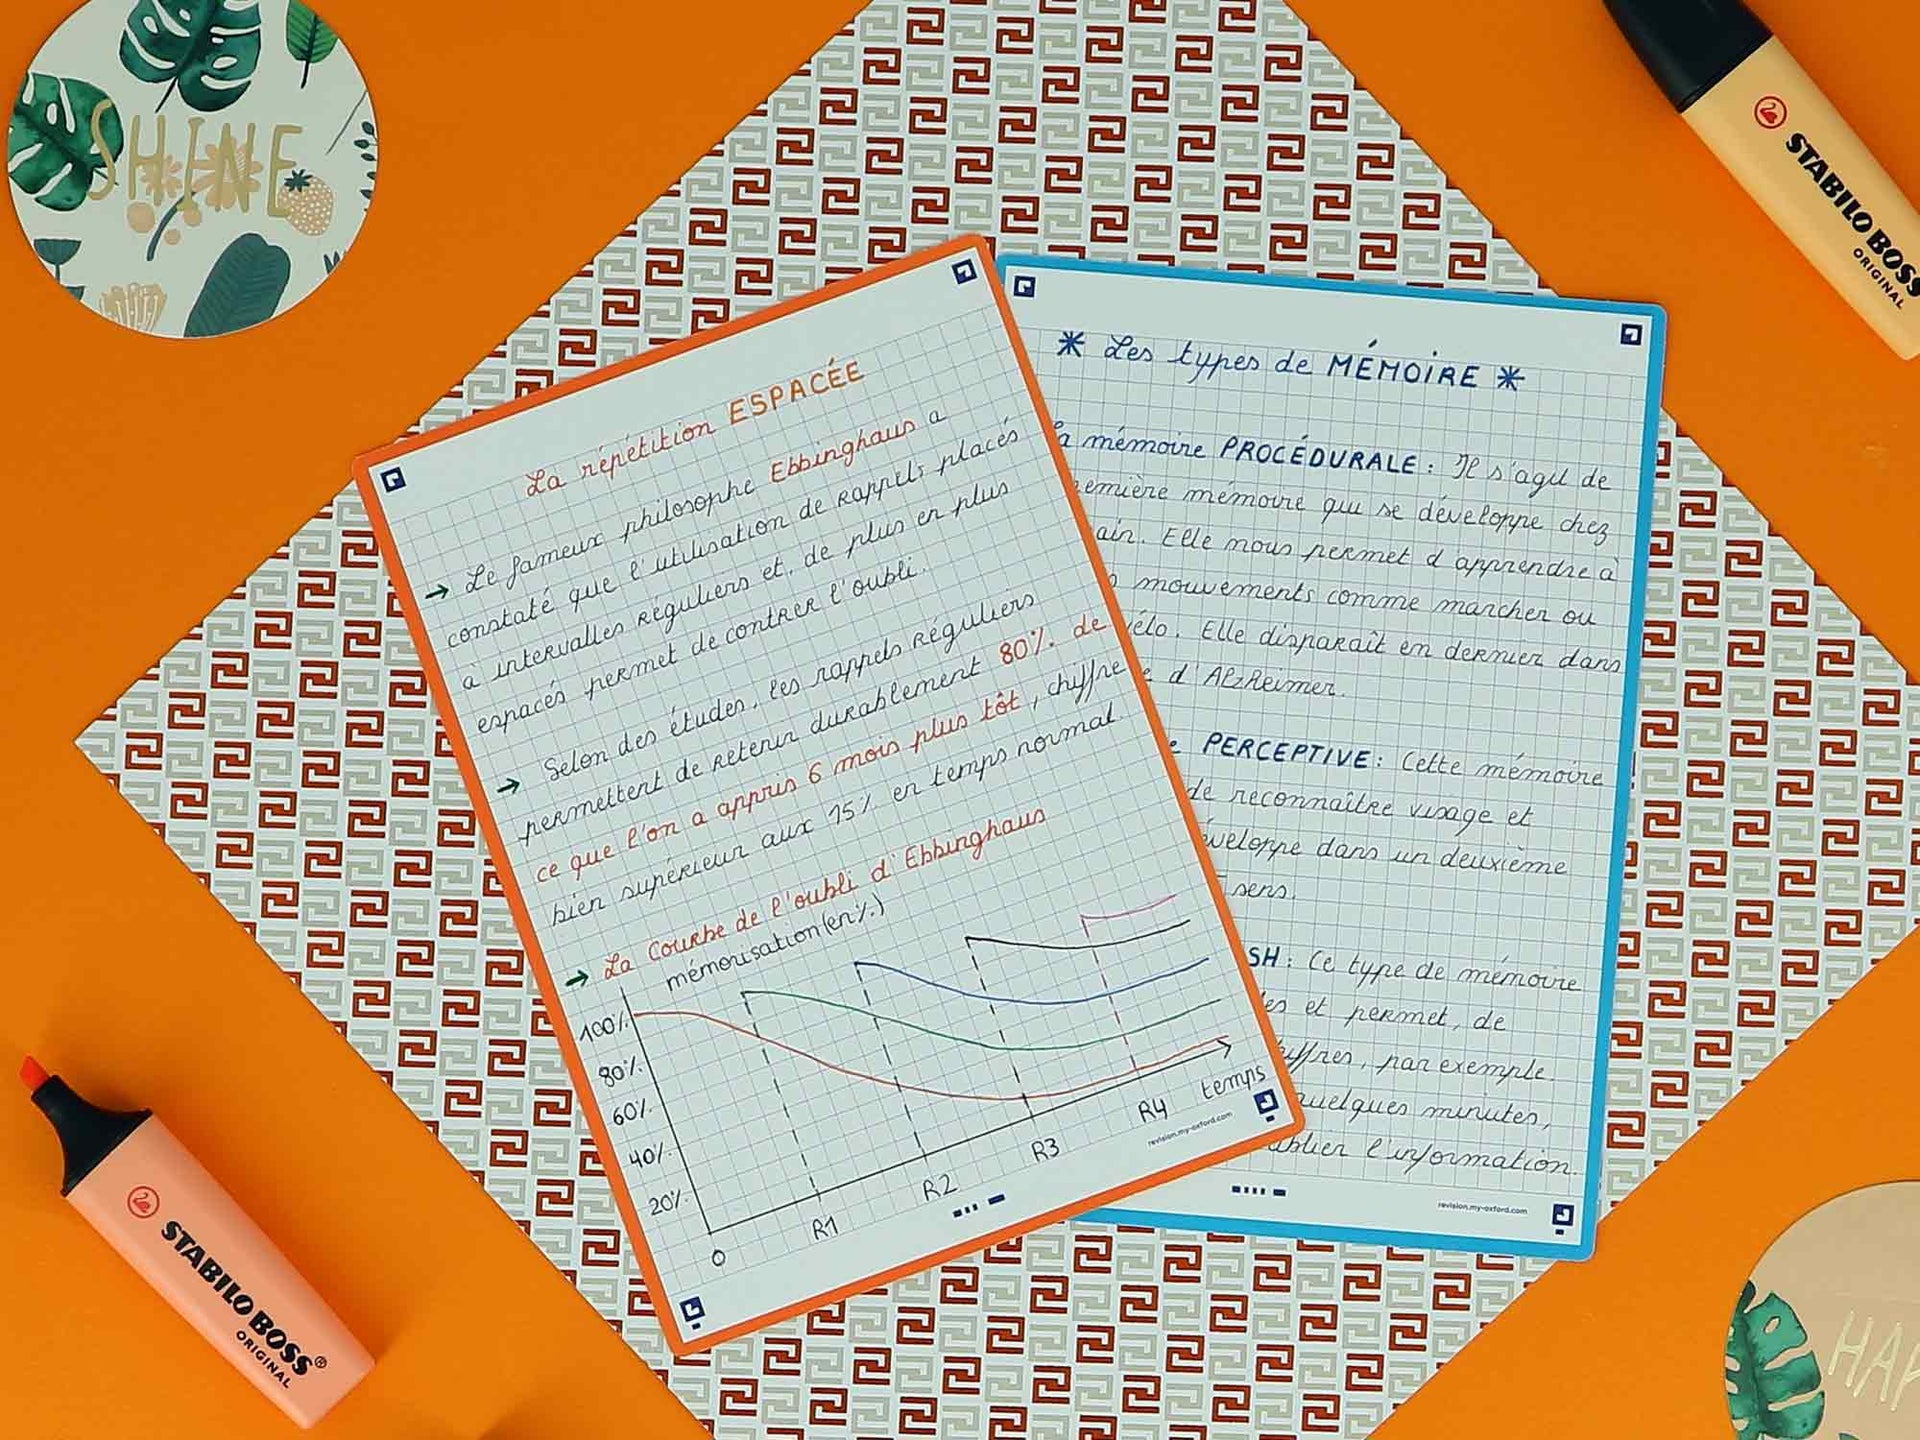 SHINE
STABILO BOSS
ORIGINAL
La répétition ESPACÉE
→ Le fameux philosophe Ebbinghaus a
constaté que l'utilisation de rappels placés
à intervalles réguliers et, de plus en plus
espacés permet de contrer l'oubli.
→ Selon des études, les rappels réguliers
permettent de retenir durablement 80% de
ce que l'on a appris 6 mois plus tôt, chiffre
bien supérieur aux 15% en temps normal.
→ La Courbe de l'oubli d'Ebbinghaus
mémorisation (en %)
100%
80%
60%
40%
20%
0
R1
R2
R3
R4
temps
revision.my-oxford.com
* Les types de MÉMOIRE *
a mémoire PROCÉDURALE : Il s'agit de
emière mémoire qui se développe chez
ain. Elle nous permet d'apprendre à
mouvements comme marcher ou
élo. Elle disparaît en dernier dans
e d'Alzheimer.
e PERCEPTIVE : Cette mémoire
de reconnaître visage et
veloppe dans un deuxième
sens.
SH : Ce type de mémoire
es et permet, de
iffres, par exemple.
quelques minutes,
ublier l'information.
revision.my-oxford.com
STABILO BOSS
ORIGINAL
HAP